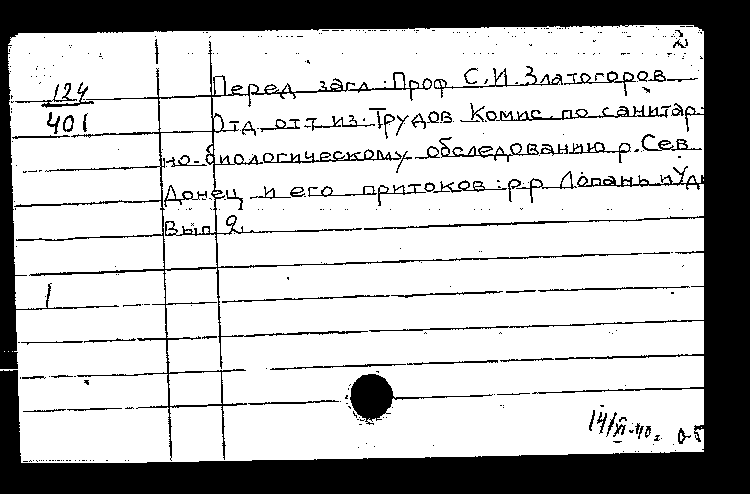 2
124
401
Перед загл: Проф С.И. Златогоров
Отд. отт из: Трудов Комис. по санитар-
но-биологическому обследованию р. Сев
Донец и его притоков: р.р Лопань и Уд
Вып 2.
1
14/XI-40г. о-б